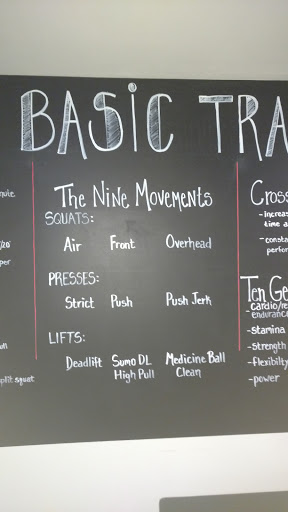 BASIC TRA
The Nine Movements
SQUATS:
Air Front Overhead
PRESSES:
Strict Push Push Jerk
LIFTS:
Deadlift Sumo DL Medicine Ball
High Pull Clean
nute
/20
per
ull
plit squat
Cross
- Increas
time a
- consta
perfor
Ten Ge
- cardio/re
endurance
- stamina
- strength
- flexibilty
- power